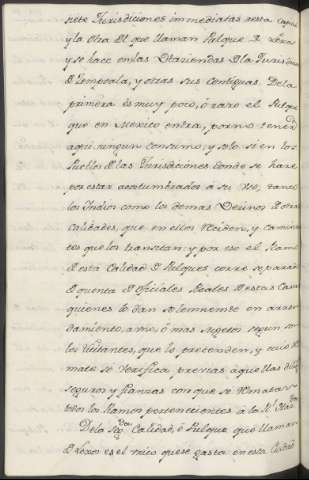 siete Jurisdiciones immediatas â esta Capital
y la otra Dl que llaman Pulque D Lexos
y se hace en las Haciendas D la Jurisdicn
D Zempoala, y otras sus Contiguas. De la
primera es muy poco, ó raro el Pulque
que en Mexico entra, por no tener
aqui ningun consumo, y solo si en los
Pueblos D las Jurisdiciones donde se hace
por estar acostumbrados a su uso, tanto
los Indios como los demas Vecinos D otras
Calidades, que en ellos residen, y caminan
tes que los transitan; y por eso el Ramo
D esta Calidad D Pulques corre separado
D quenta D Oficiales Reales D estas Caxas
quienes lo dan solemnemte en arren
damiento, a uno, ó mas sugetos segun son
los licitantes, que lo pretenden, y cuio Re
mate se verifica previas aquellas dilig
seguros y fianzas con que se rematan
todos los Ramos pertenecientes a la Rl Hazda
De la Segda Calidad, ó Pulque que llaman
D Lexos es el unico que se gasta en esta Ciudad